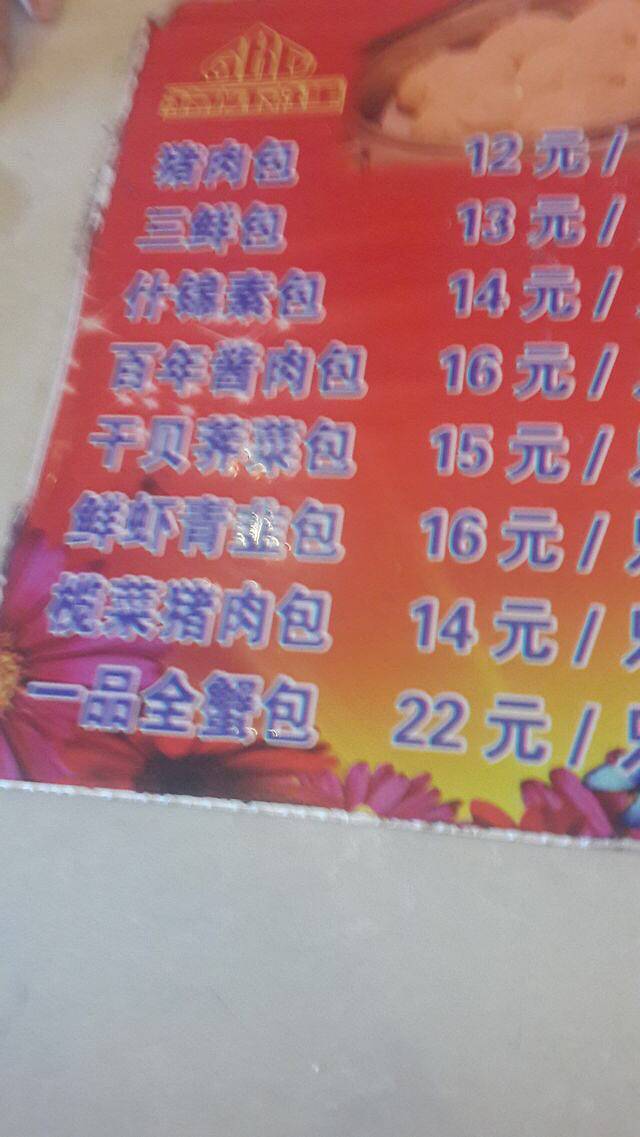 猪肉包 12元/
三鲜包 13元/
什锦素包 14元/
百年酱肉包 16元/
干贝荠菜包 15元/
鲜虾青韭包 16元/
榄菜猪肉包 14元/只
一品全蟹包 22元/只